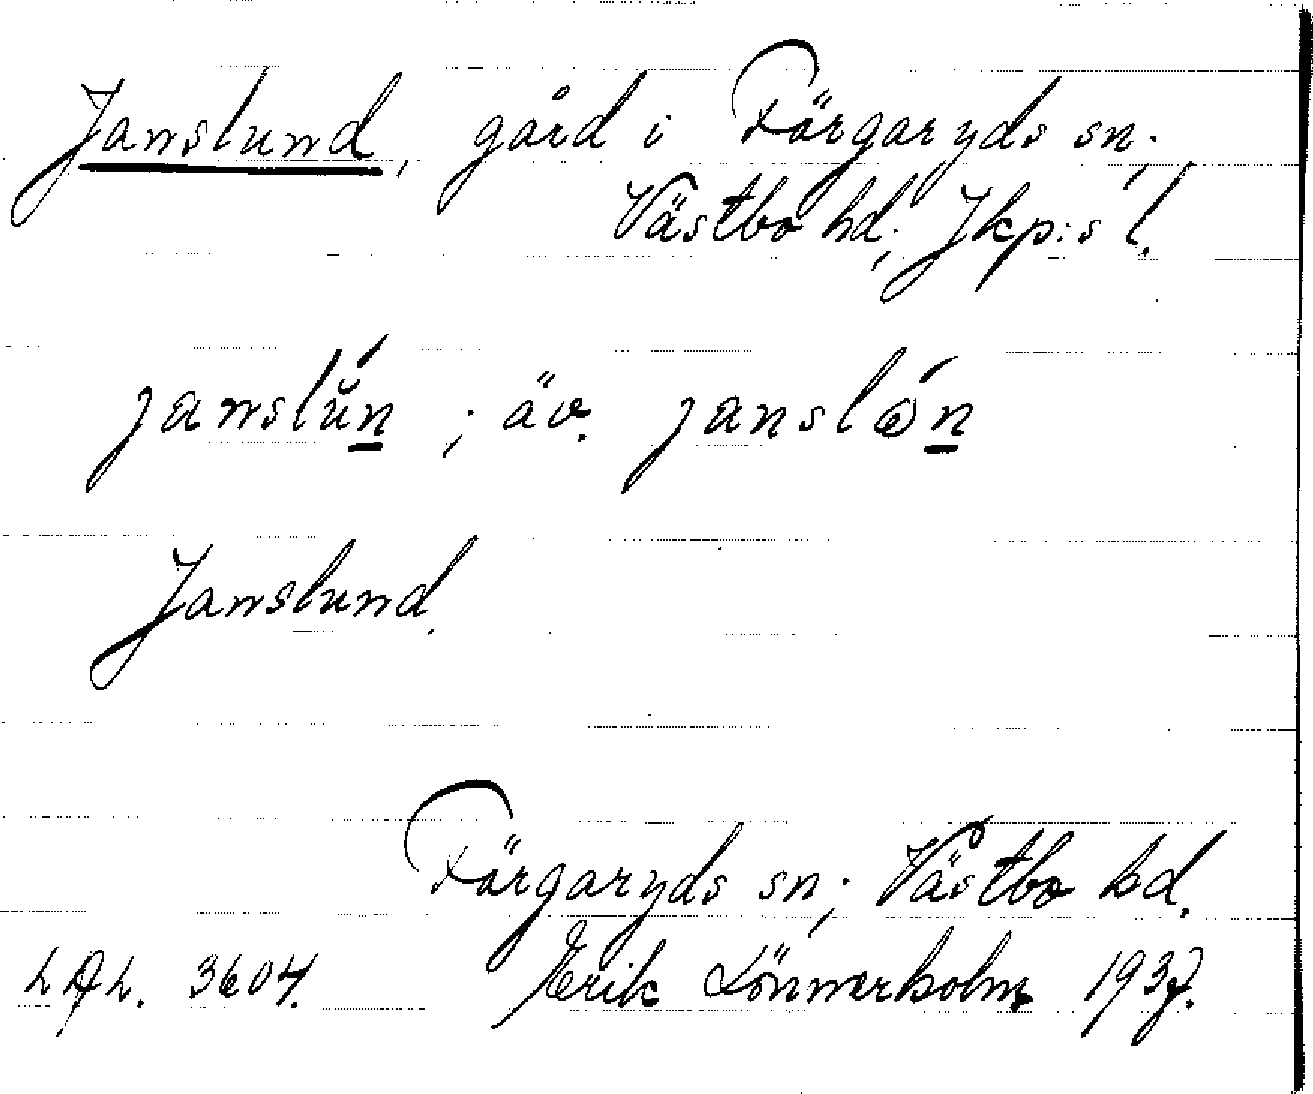 Janslund, gård i Färgaryds sn;
Västbo hd; Jkp:s l.
janslŭ́n ; äv. janslώn
Janslund.
Färgaryds sn; Västbo hd.
LAL. 3604. Erik Lönnerholm 1937.